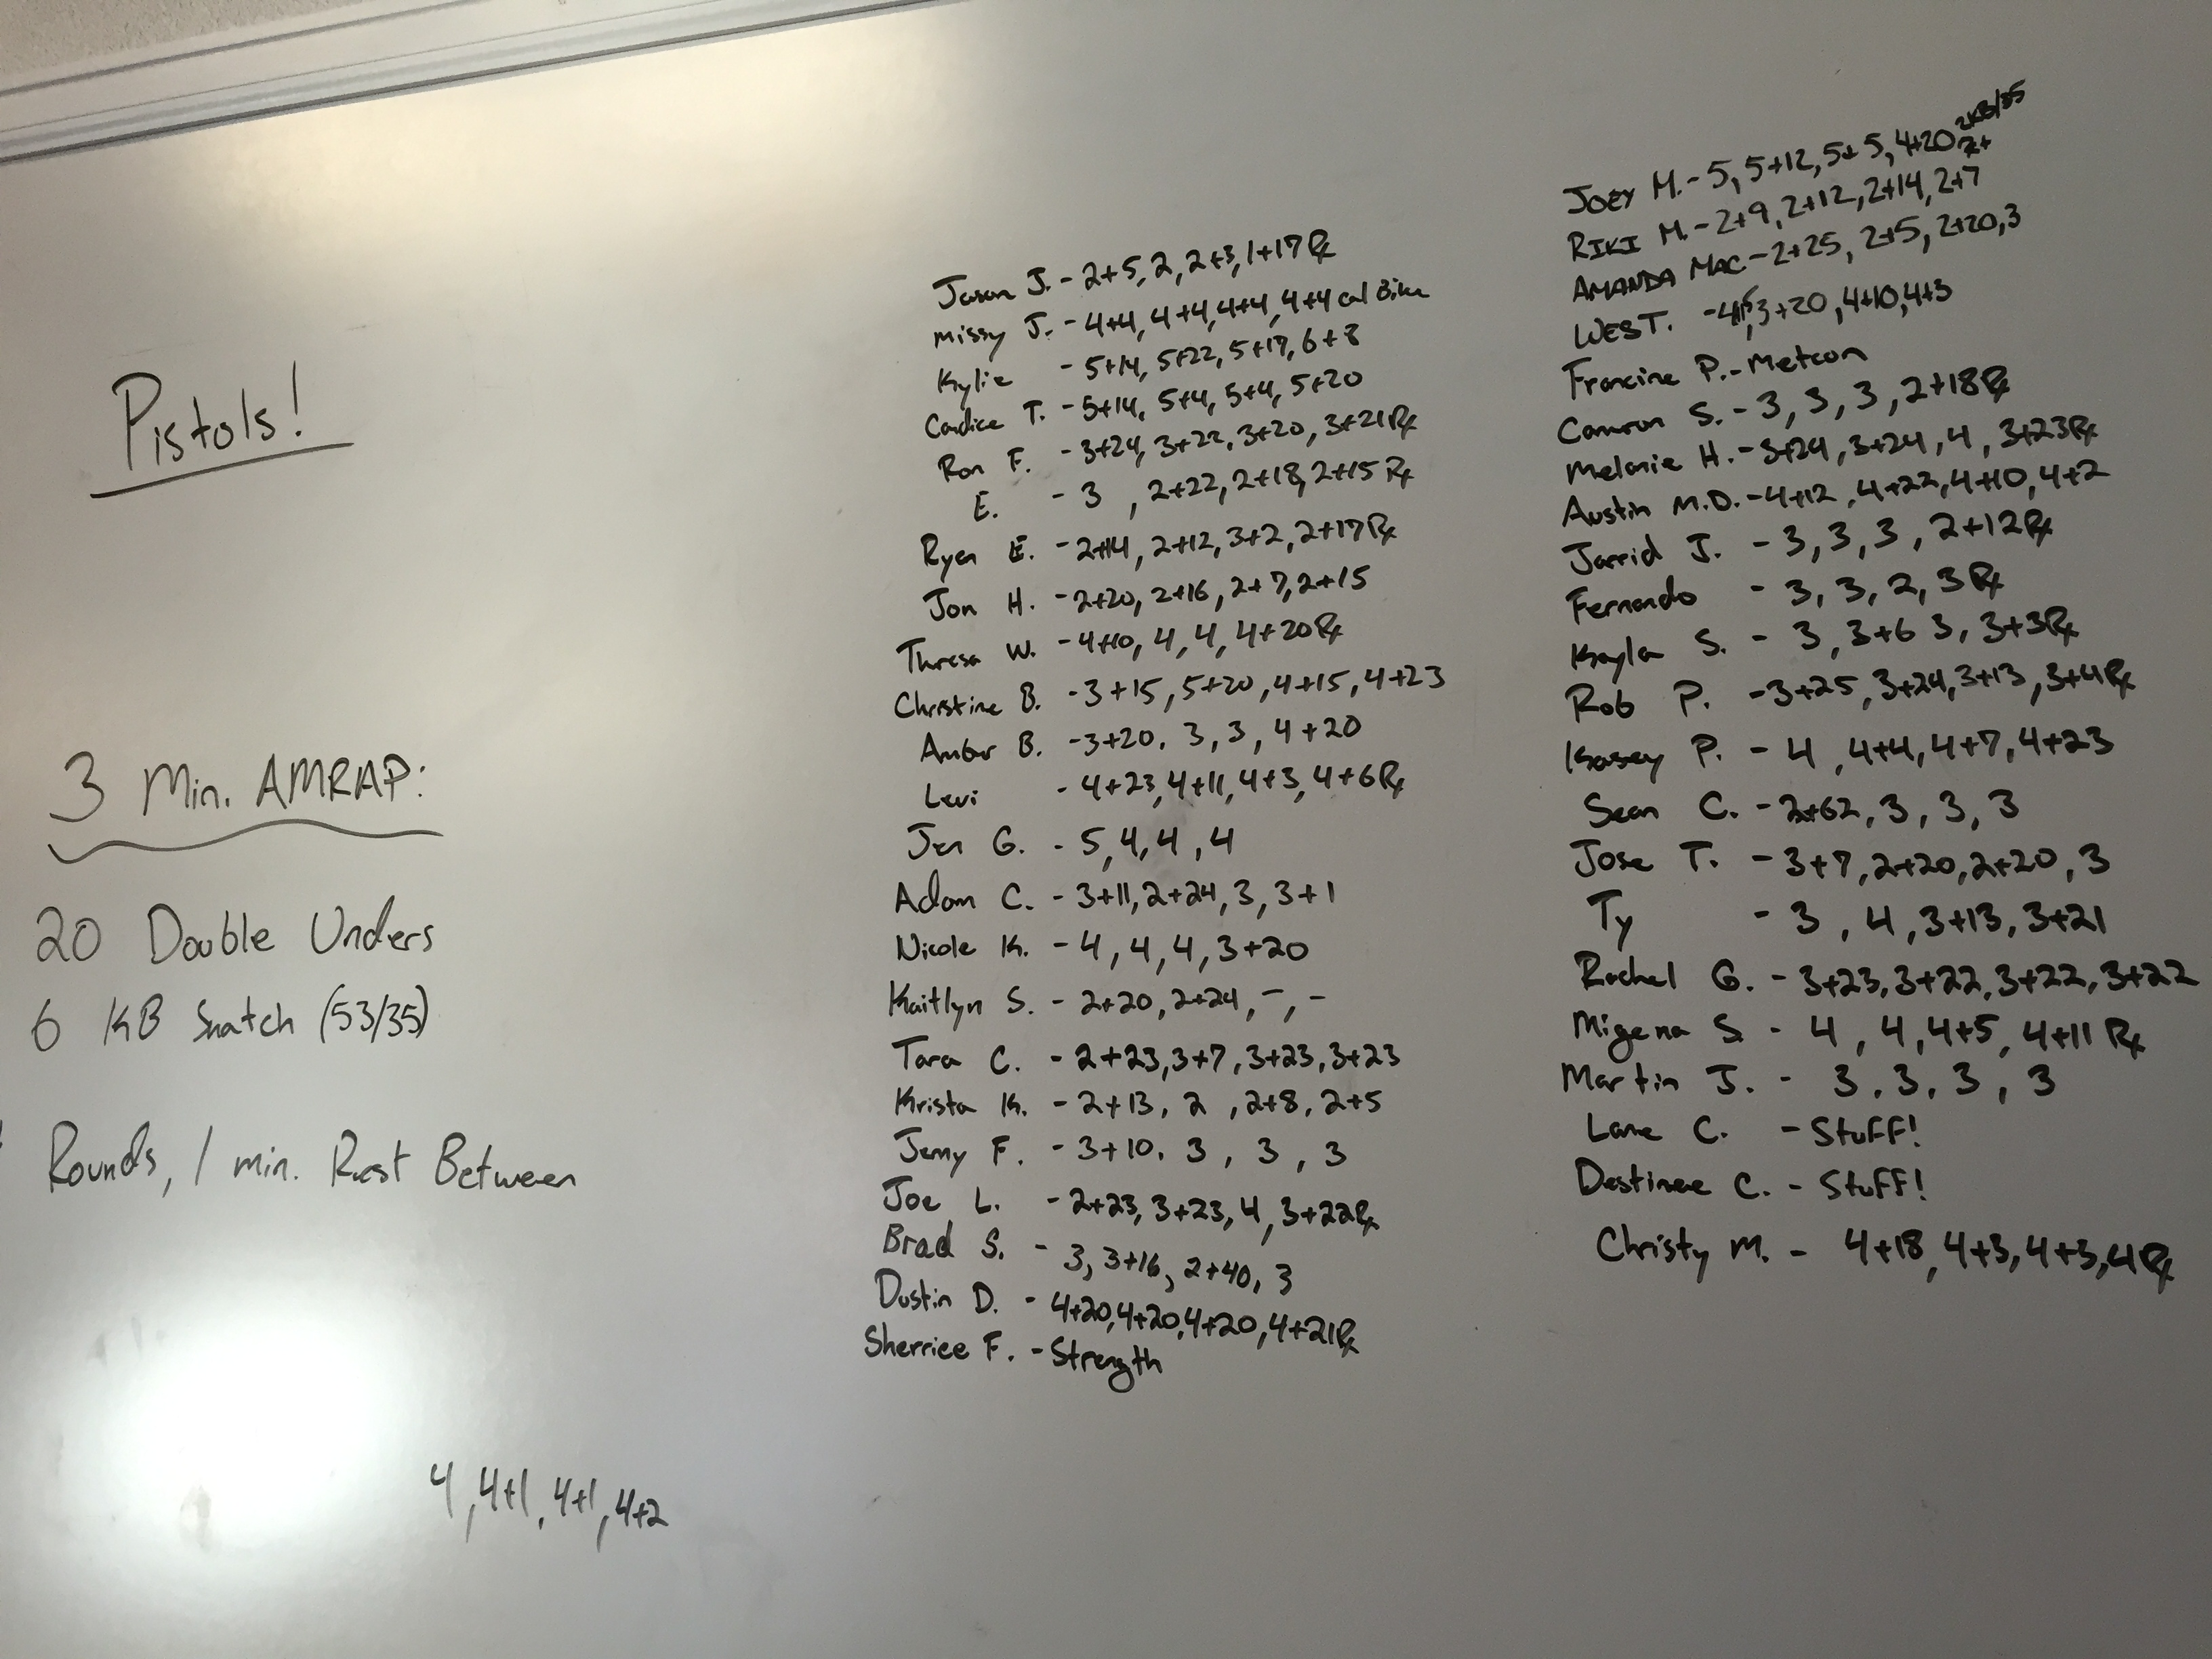 Pistols!
3 Min. AMRAP:
20 Double Unders
6 KB Snatch (53/35)
Rounds, 1 min. Rest Between
4, 4+1, 4+1, 4+2
Jason J. - 2+5, 2, 2+3, 1+17 Rx
Missy J. - 4+4, 4+4, 4+4, 4+4 cal Bike
Kylie - 5+14, 5+22, 5+17, 6+8
Candice T. - 5+14, 5+4, 5+4, 5+20
Ron F. - 3+24, 3+22, 3+20, 3+21 Rx
E. - 3, 2+22, 2+18, 2+15 Rx
Ryen E. - 2+14, 2+12, 3+2, 2+17 Rx
Jon H. - 2+20, 2+16, 2+7, 2+15
Thresa W. - 4+10, 4, 4, 4+20 Rx
Christine B. - 3+15, 5+20, 4+15, 4+23
Amber B. - 3+20, 3, 3, 4+20
Levi - 4+23, 4+11, 4+3, 4+6 Rx
Jen G. - 5, 4, 4, 4
Adam C. - 3+11, 2+24, 3, 3+1
Nicole K. - 4, 4, 4, 3+20
Kaitlyn S. - 2+20, 2+24, -, -
Tara C. - 2+23, 3+7, 3+23, 3+23
Krista K. - 2+13, 2, 2+8, 2+5
Jemy F. - 3+10, 3, 3, 3
Joe L. - 2+23, 3+23, 4, 3+22 Rx
Brad S. - 3, 3+16, 2+40, 3
Dustin D. - 4+20, 4+20, 4+20, 4+21 Rx
Sherriee F. - Strength
JOEY M. - 5, 5+12, 5+5, 4+20
RIKI M. - 2+9, 2+12, 2+14, 2+7
AMANDA MAC - 2+25, 2+5, 2+20, 3
WES T. - 3+20, 4+10, 4+3
Francine P. - Metcon
Camron S. - 3, 3, 3, 2+18 Rx
Melanie H. - 3+24, 3+24, 4, 3+23 Rx
Austin M.D. - 4+12, 4+22, 4+10, 4+2
Jarrid J. - 3, 3, 3, 2+12 Rx
Fernando - 3, 3, 2, 3 Rx
Kayla S. - 3, 3+6 3, 3+3 Rx
Rob P. - 3+25, 3+24, 3+13, 3+4 Rx
Kasey P. - 4, 4+4, 4+7, 4+23
Sean C. - 2+62, 3, 3, 3
Jose T. - 3+7, 2+20, 2+20, 3
Ty - 3, 4, 3+13, 3+21
Rachel G. - 3+23, 3+22, 3+22, 3+22
Migena S - 4, 4, 4+5, 4+11 Rx
Martin J. - 3, 3, 3, 3
Lane C. - Stuff!
Destinee C. - Stuff!
Christy M. - 4+18, 4+3, 4+3, 4 Rx